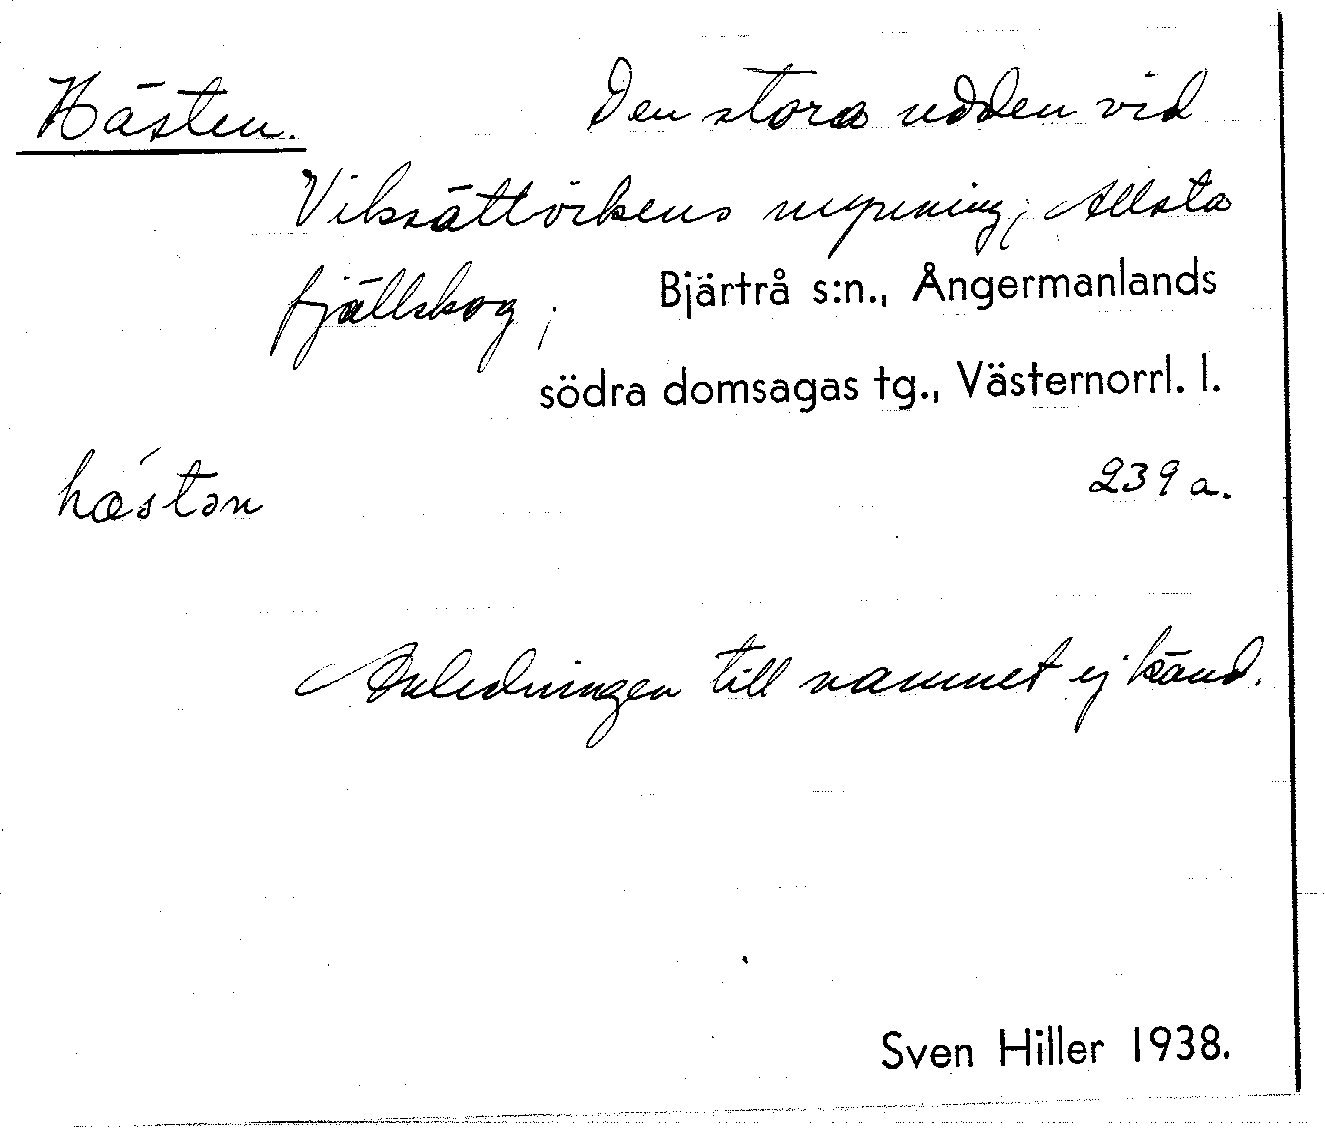 Hästen. Den stora udden vid
Viksättvikens mynning, Allsta
fjällskog, Bjärtrå s:n., Ångermanlands
södra domsagas tg., Västernorrl. l.
hæ´stən 239 a.
Anledningen till namnet ej känd.
Sven Hiller 1938.